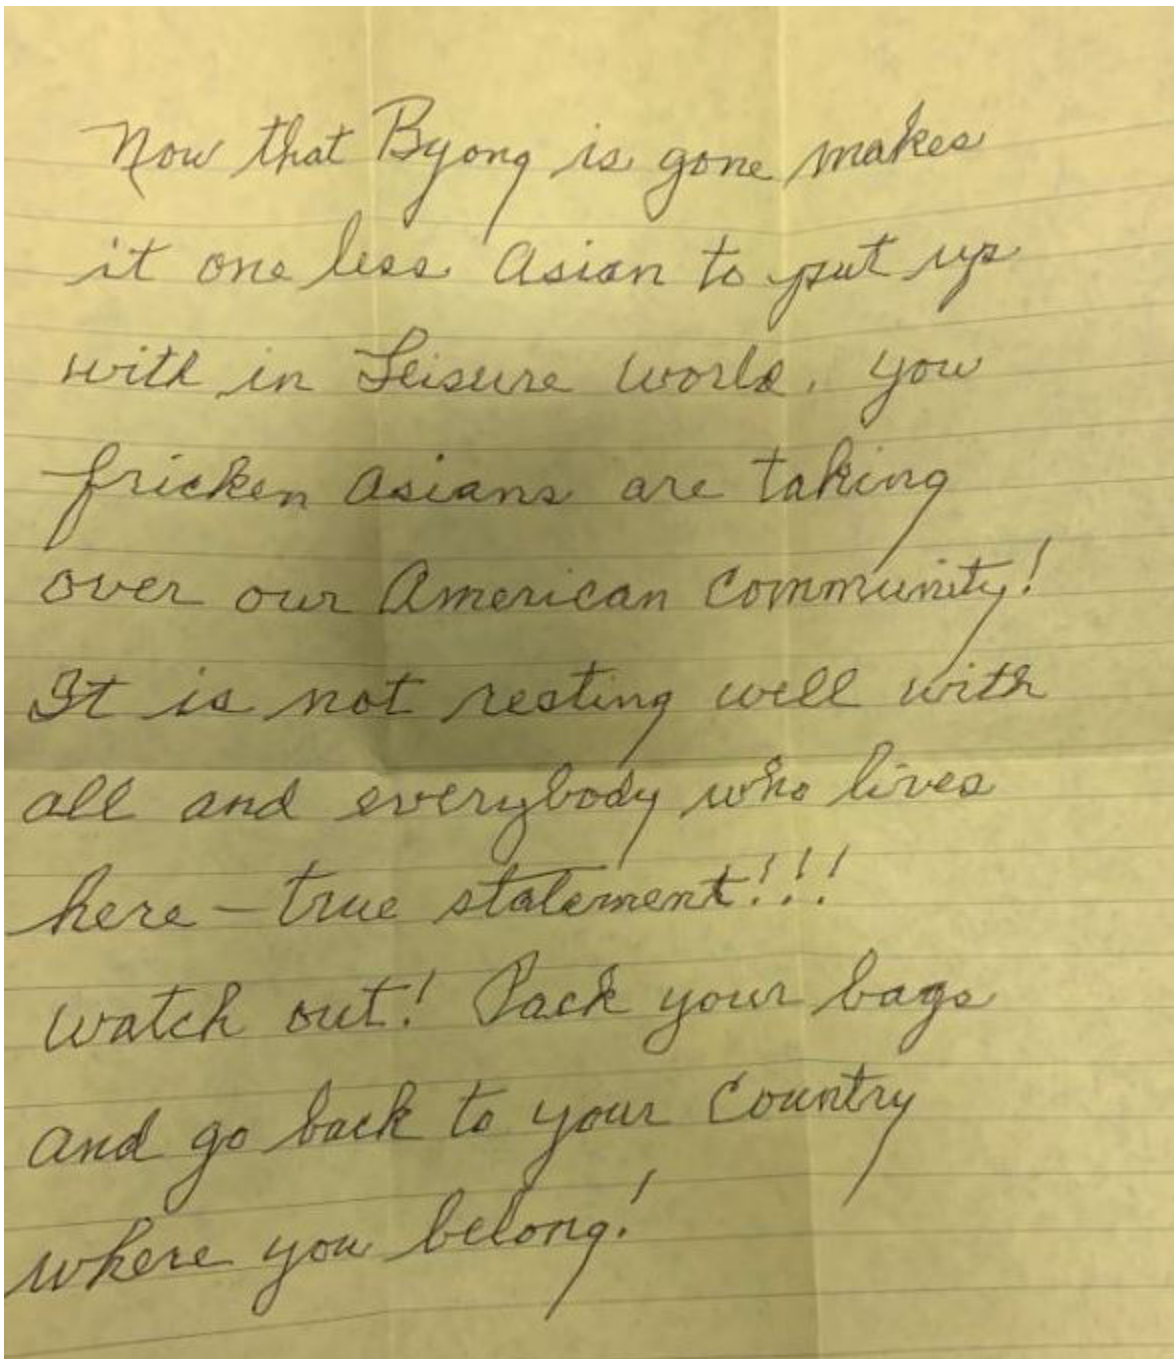 Now that Byong is gone makes
it one less Asian to put up
with in Leisure World. You
fricken Asians are taking
over our American Community!
It is not resting well with
all and everybody who lives
here – true statement!!!
Watch out! Pack your bags
and go back to your Country
where you belong!